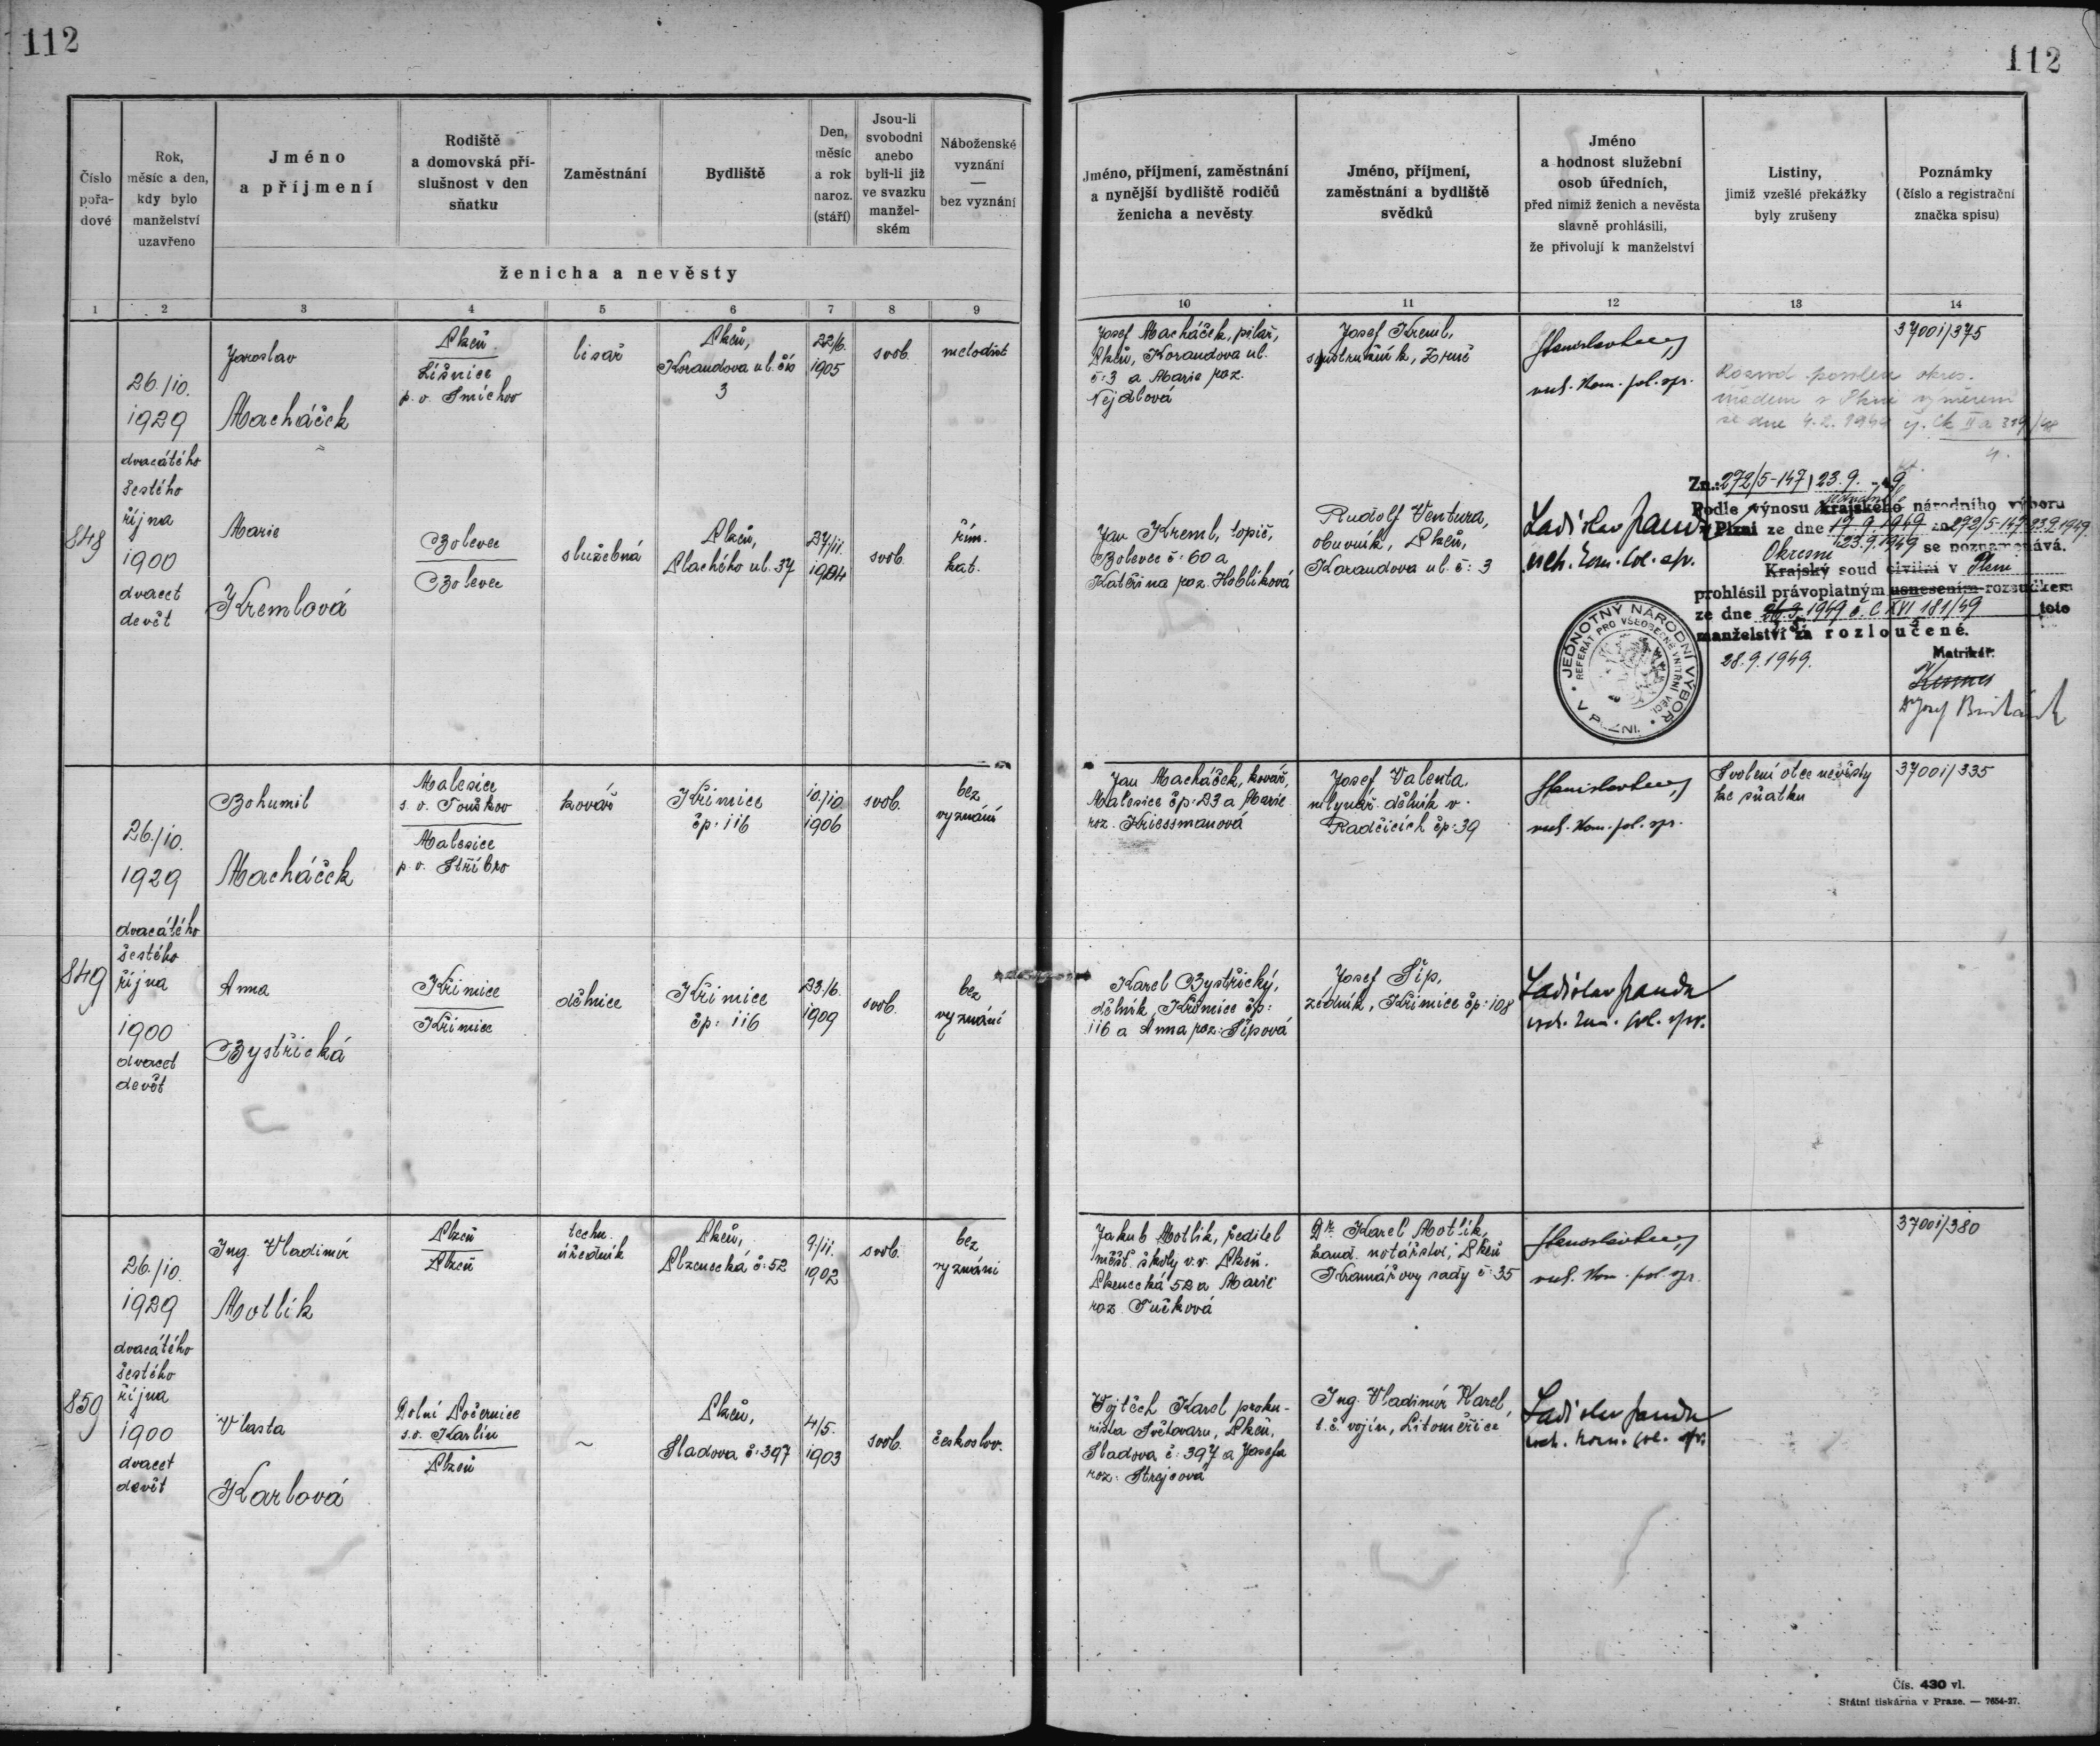 112
112
Číslo pořa-dové
Rok, měsíc a den, kdy bylo manželství uzavřeno
Jméno a příjmení
Rodiště a domovská pří-slušnost v den sňatku
Zaměstnání
Bydliště
Den, měsíc a rok naroz. (stáří)
Jsou-li svobodni anebo byli-li již ve svazku manžel-ském
Náboženské vyznání — bez vyznání
ženicha a nevěsty
Jméno, příjmení, zaměstnání a nynější bydliště rodičů ženicha a nevěsty
Jméno, příjmení, zaměstnání a bydliště svědků
Jméno a hodnost služební osob úředních, před nimiž ženich a nevěsta slavně prohlásili, že přivolují k manželství
Listiny, jimiž vzešlé překážky byly zrušeny
Poznámky (číslo a registrační značka spisu)
1 2 3 4 5 6 7 8 9 10 11 12 13 14
848
26./10.
1929
dvacátého
šestého
října
1900
dvacet
devět
Jaroslav
Macháček
Plzeň
Líšnice
p. o. Smíchov
lisař
Plzeň,
Korandova ul. čís
3
22/6.
1905
svob.
metodist
Josef Macháček, pilař,
Plzeň, Korandova ul.
č. 3 a Marie roz.
Nejdlová
Josef Kreml,
soustružník,
37001/375
Rozvod povolen okres.
úřadem v Plzni výměrem
ze dne 4.2.1949 čj. Ck II a 319/48
Marie
Kremlová
Bolevec
Bolevec
služebná
Plzeň,
Plachého ul. 37
27/11.
1904
svob.
řím.
kat.
Jan Kreml, topič,
Bolevec č. 60 a
Kateřina roz. Hoblíková
Rudolf Ventura,
obuvník, Plzeň,
Korandova ul. č. 3
Ladislav Janda
Zn.: 272/5-147, 23.9.-49
Podle výnosu krajského národního výboru
v Plzni ze dne 19.9.1949 zn 272/5-147 23.9.1949.
23.9.1949 se poznamenává.
Okresní
Krajský soud civilní v Plzni
prohlásil právoplatným usnesením rozsudkem
ze dne 1949 č. C XVI 181/49 toto
manželství za rozloučené.
28.9.1949.
Matrikář.
JEDNOTNÝ NÁRODNÍ VÝBOR V PLZNI.
REFERÁT PRO VŠEOBECNÉ VNITŘNÍ VĚCI.
849
26./10.
1929
dvacátého
šestého
října
1900
dvacet
devět
Bohumil
Macháček
Malesice
s. o. Touškov
Malesice
p. o. Stříbro
kovář
Křimice
čp. 116
10./10
1906
svob.
bez
vyznání
Jan Macháček, kovář,
Malesice čp. 23 a Marie
roz. Kriessmanová
Josef Valenta
mlynář. dělník v
Radčicích čp. 39
Svolení otce nevěsty
ke sňatku
37001/335
Anna
Bystřická
Křimice
Křimice
dělnice
Křimice
čp. 116
23./6.
1909
svob.
bez
vyznání
Karel Bystřický,
dělník, Křimice čp.
116 a Anna roz. Šípová
Josef Šíp,
zedník, Křimice čp. 108
Ladislav Janda
850
26./10.
1929
dvacátého
šestého
října
1900
dvacet
devět
Ing. Vladimír
Motlík
Plzeň
Plzeň
techn.
úředník
Plzeň,
Plzenecká č. 52
9/11.
1902
svob.
bez
vyznání
Jakub Motlík, ředitel
měšť. školy v. v. Plzeň.
Plzenecká 52 a Marie
roz. Tučková
Dr. Karel Motlík,
kand. notářství, Plzeň
Kramářovy sady č. 35
37001/380
Vlasta
Karlová
Dolní Počernice
s. o. Karlín
Plzeň
~
Plzeň,
Sladova č. 397
4/5.
1903
svob.
českoslov.
Vojtěch Karel proku-
rista Světovaru, Plzeň,
Sladova č. 397 a Josefa
roz. Strejcová
Ing. Vladimír Karel,
t. č. vojín, Litoměřice
Ladislav Janda
Čís. 430 vl.
Státní tiskárna v Praze. — 7654-27.